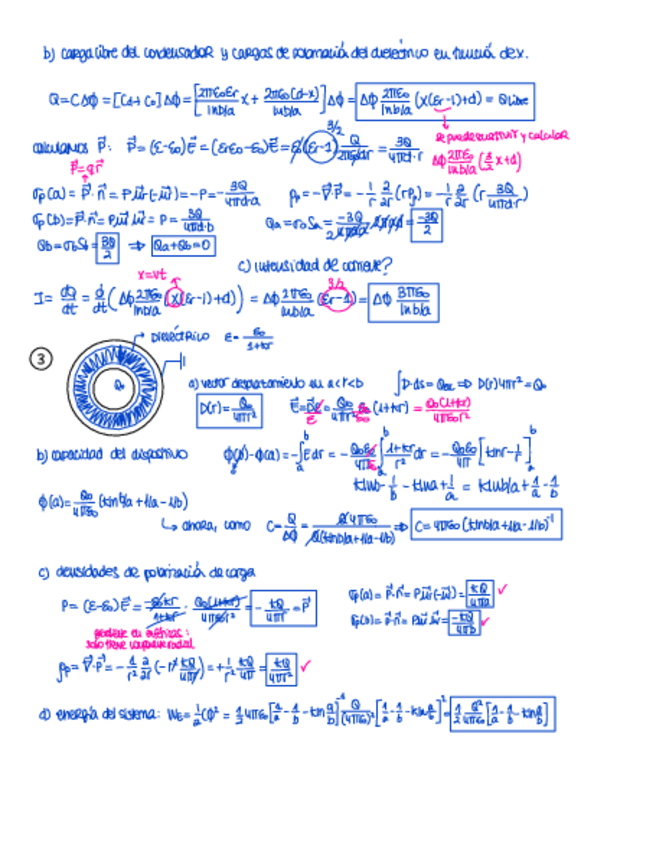 b) carga libre del condensador y cargas de polarización del dieléctrico en función de x.
Q=CΔϕ=[Cd+C₀]Δϕ=[2πε₀εr/lnb/a x + 2πε₀(d-x)/lnb/a]Δϕ = Δϕ 2πε₀/lnb/a (x(εr-1)+d) = Qlibre
3/2
se puede sustituir y calcular
calculamos P⃗: P⃗=(ε-ε₀)E⃗=(εrε₀-ε₀)E⃗=ε₀(εr-1) Q/2πε₀dr = 3Q/4πd·r
Δϕ 2πε₀/lnb/a (1/2 x+d)
σp(a)=P⃗·n⃗=P·u⃗r(-u⃗r)=-P=-3Q/4πd·a ρp=-∇·P⃗=-1/r ∂/∂r(rPp)=-1/r ∂/∂r(r 3Q/4πd·r)
σp(b)=P⃗·n⃗=Pu⃗r u⃗r=P=3Q/4πd·b Qa=σaSa=-3Q/2 = -3Q/2
Qb=σbSb=3Q/2 ⇒ Qa+Qb=0
c) intensidad de corriente?
x=vt
3/2
I=dQ/dt=d/dt(Δϕ 2πε₀/lnb/a (x(εr-1)+d)) = Δϕ 2πε₀/lnb/a (εr-1) = Δϕ 3πε₀/lnb/a
③
Dieléctrico ε=ε₀/1+kr
Q₀
a) vector desplazamiento en a<r<b ∫D·ds=Q₀ ⇒ D(r)4πr²=Q₀
D(r)=Q₀/4πr² E⃗=D⃗/ε=Q₀/4πr²ε₀ (1+kr) = Q₀(1+kr)/4πε₀r²
b) capacidad del dispositivo ϕ(b)-ϕ(a)=-∫Edr = -Q₀/4πε₀ ∫1+kr/r² dr = -Q₀/4πε₀ [klnr-1/r]
klnb-1/b-klna+1/a = klnb/a+1/a-1/b
ϕ(a)=Q₀/4πε₀ (klnb/a+1/a-1/b)
↳ ahora, como C=Q/Δϕ = Q4πε₀/Q(klnb/a+1/a-1/b) ⇒ C=4πε₀(klnb/a+1/a-1/b)⁻¹
c) densidades de polarización de carga
P=(ε-ε₀)E⃗=-ε₀kr/1+kr · Q₀(1+kr)/4πε₀r² = -kQ/4πr =P⃗
σp(a)=P⃗·n⃗=Pu⃗r(-u⃗r)=kQ/4πa ✓
σp(b)=P⃗·n⃗=Pu⃗r u⃗r=-kQ/4πb ✓
solo tiene componente radial
ρp=∇·P⃗=-1/r² ∂/∂r(-r² kQ/4πr)=+1/r² kQ/4π = kQ/4πr² ✓
d) energía del sistema: WE=1/2 Cϕ² = 1/2 4πε₀[1/a-1/b-kln a/b]⁻¹ Q/(4πε₀)² [1/a-1/b-kln a/b]² = 1/2 Q²/4πε₀ [1/a-1/b-kln a/b]